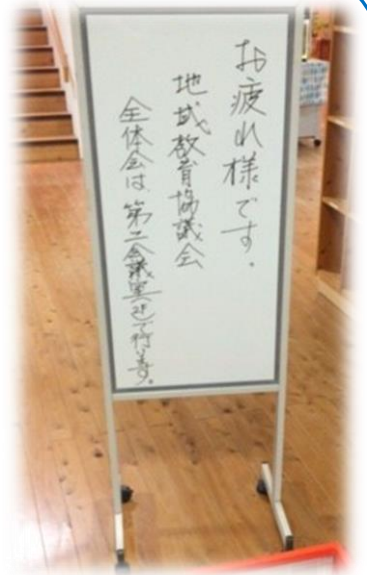 お疲れ様です。
地域教育協議会
全体会は、第二会議室で行います。